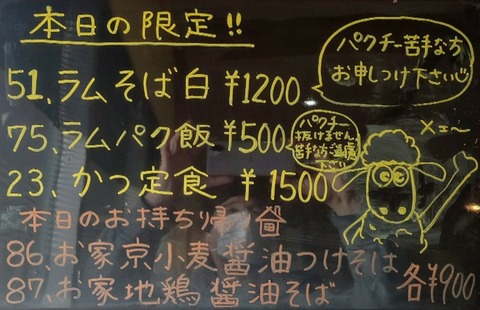 本日の限定!!
パクチー苦手な方
お申しつけ下さい
51.ラムそば白 ¥1200
75.ラムパク飯 ¥500
パクチー
抜けません
苦手な方ご遠慮
下さい
23.かつ定食 ¥1500
メェ〜
本日のお持ち帰り
86.お家京小麦醤油つけそば
87.お家地鶏醤油そば
各¥900